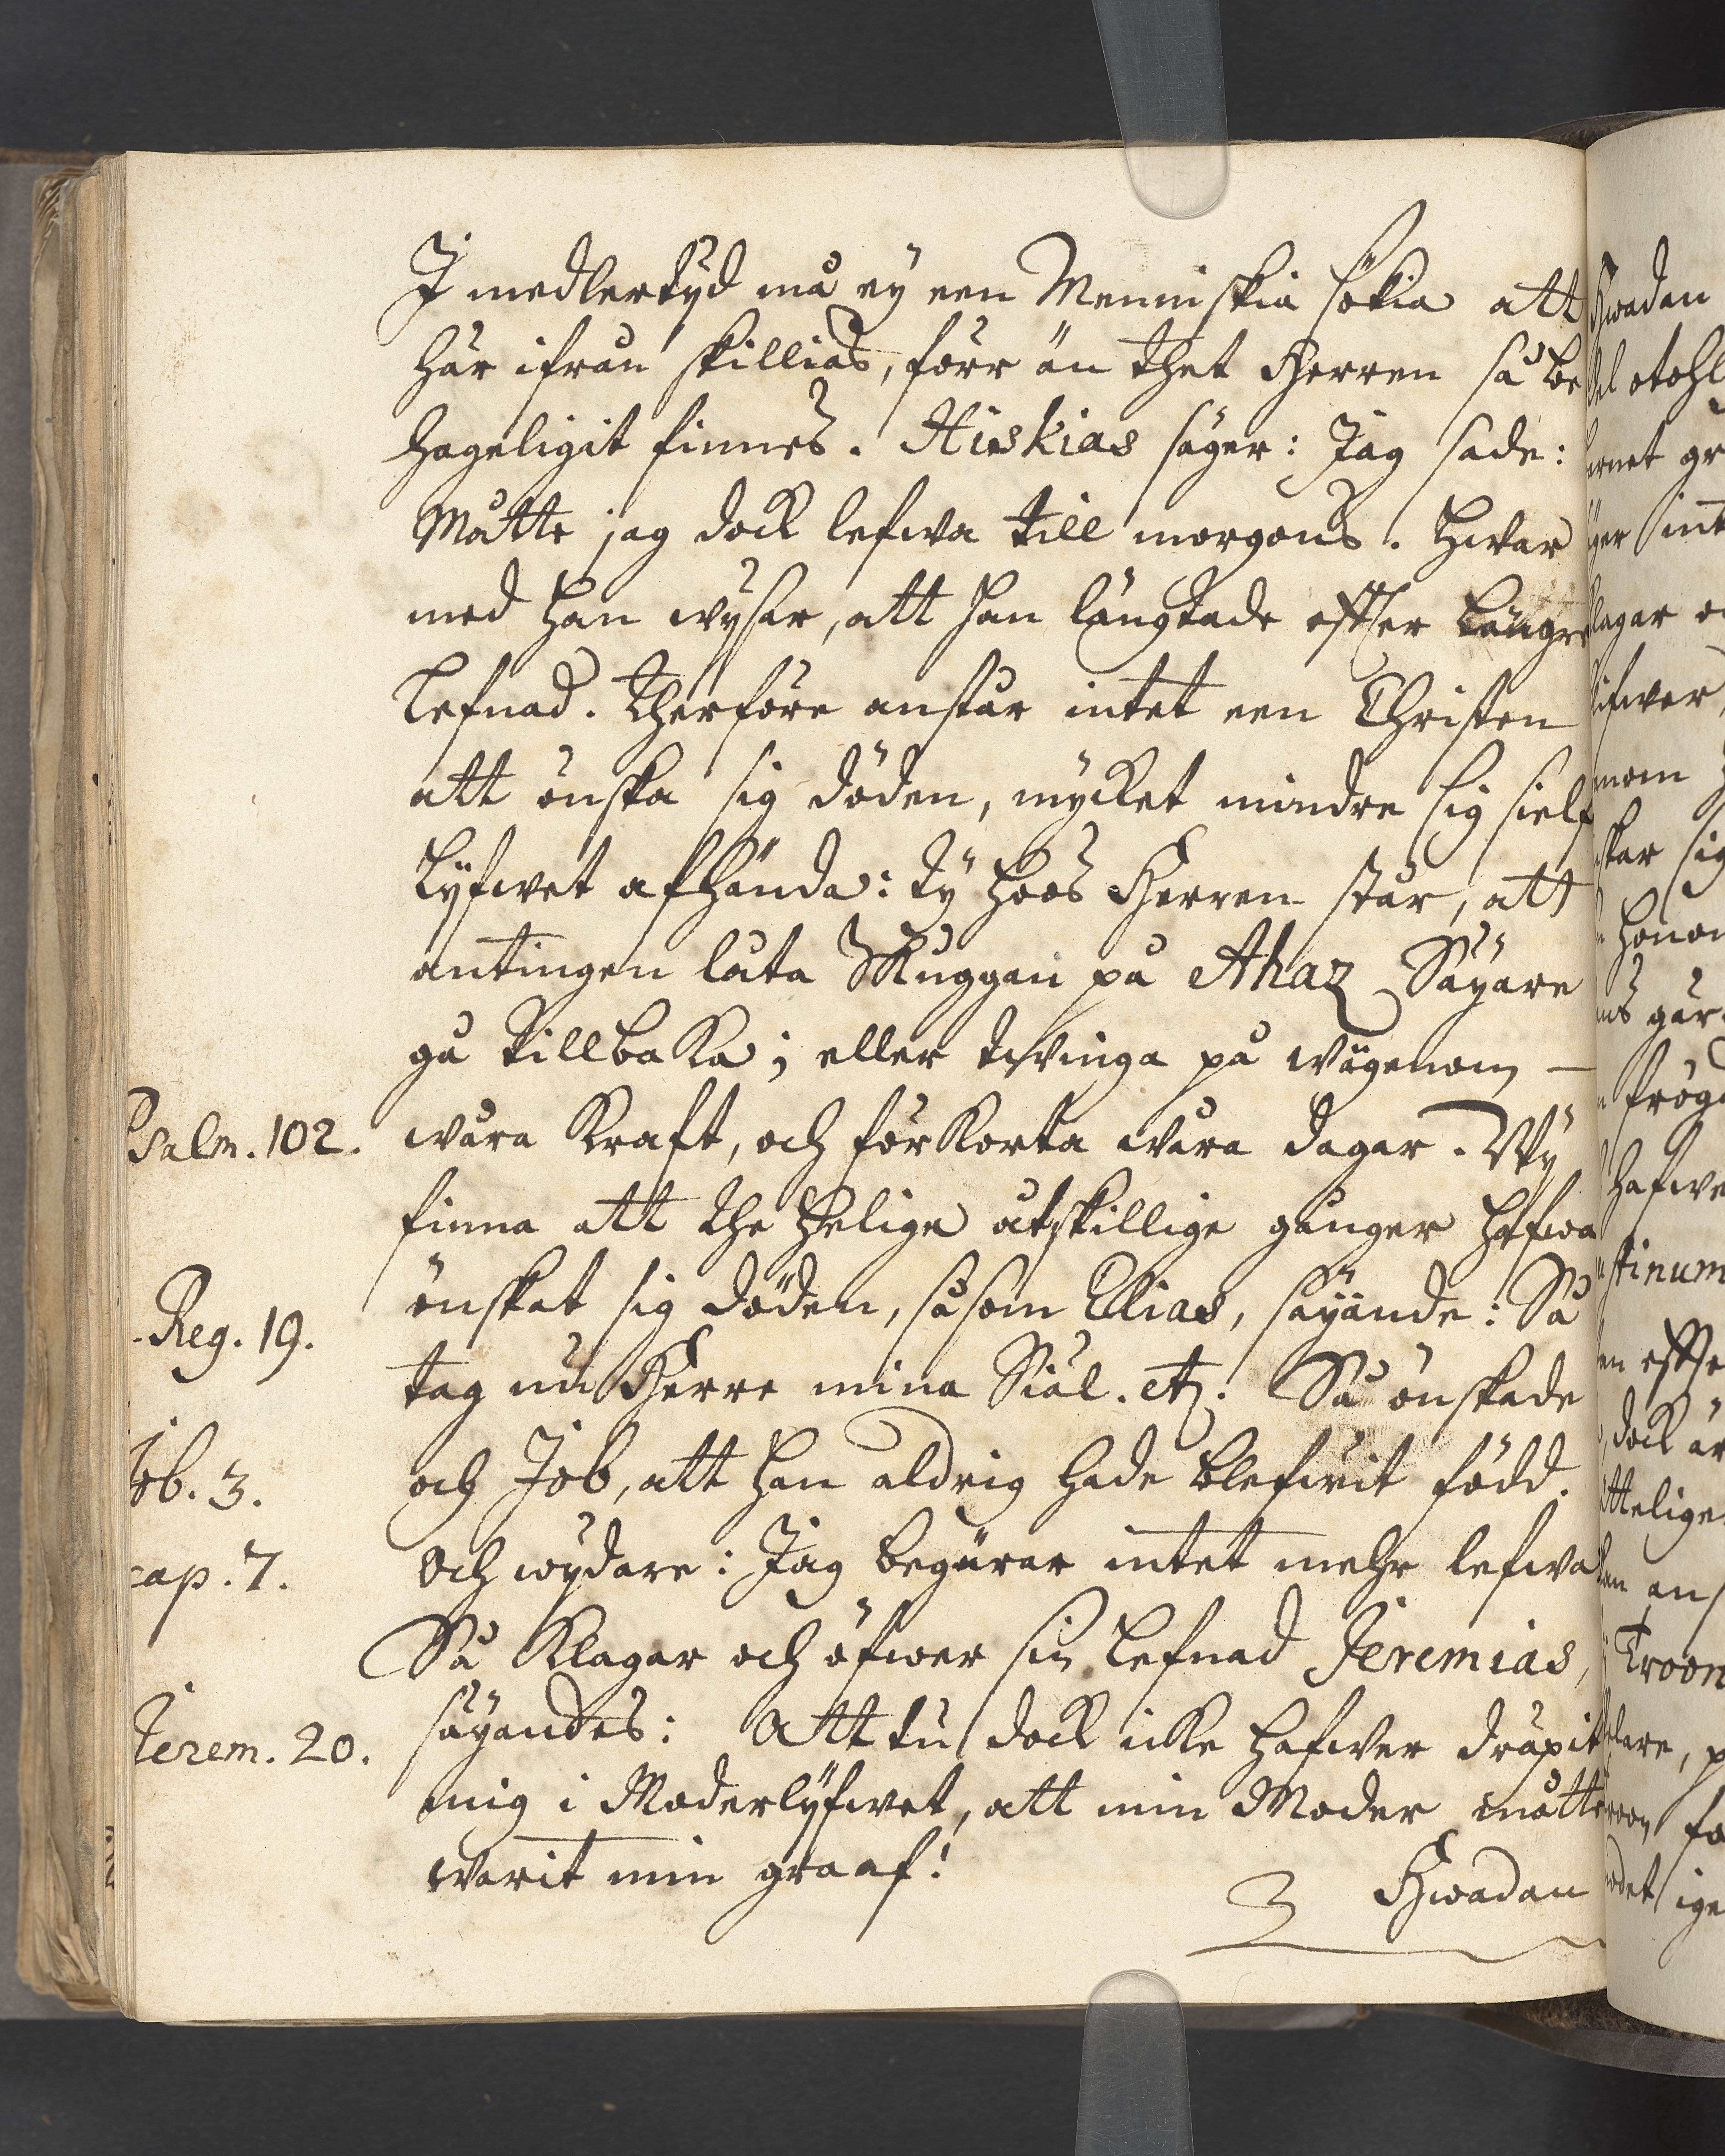 I medlertÿd må eÿ een Menniskia sökia att
här ifrån skillias, förr än thet Herren så be
hageligit finnes. Hiskias säger: Jag sade:
Måtte jag dock lefwa till morgons. Hwar
med han wÿsar, att han längtade effter längre
Lefnad. Therföre anstår intet een Christen
att önska sig döden, mÿcket mindre sig sielf
Lÿfwet afhända: tÿ hoos Herren står, att
antingen låta Skuggan på Ahaz Säÿare
gå tillbaka; eller twinga på wägenom
Psalm. 102. wåra Kraft, och förkorta wåra dagar. Wÿ
finna att the helige åtskillige gånger hafwa
Reg. 19. önskat sig döden, såsom Elias, säÿande: Så
tag nu Herre mina Siäl. etc. Så önskade
Job. 3. och Job, att han aldrig hade blefwit född.
cap. 7. Och wÿdare: Jag begärar intet mehr lefwa
Så klagar och öfwer sin Lefnad Jeremias,
Jerem. 20. säÿandes: Att tu dock icke hafwer dräpit
mig i Moderlÿfwet, att min Moder måtte
warit min graaf!
Hwadan